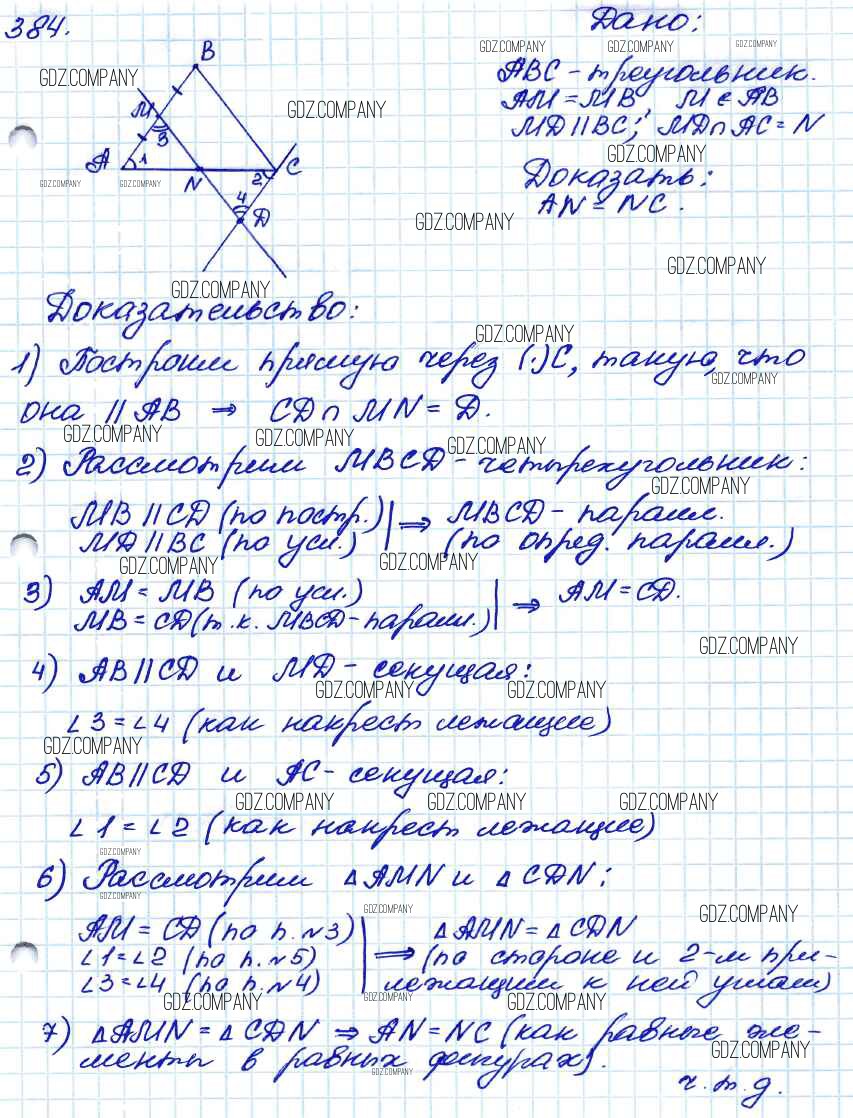 384.
Дано:
ABC - треугольник.
AM = MB, M ∈ AB
MD || BC; MD ∩ AC = N
Доказать:
AN = NC.
B
M
3
A
1
N
2
C
4
D
Доказательство:
1) Построим прямую через (·)C, такую, что
она || AB ⇒ CD ∩ MN = D.
2) Рассмотрим MBCD - четырехугольник:
MB || CD (по постр.) ⇒ MBCD - паралл.
MD || BC (по усл.) (по опред. паралл.)
3) AM = MB (по усл.) ⇒ AM = CD.
MB = CD (т.к. MBCD - паралл.)
4) AB || CD и MD - секущая:
∠3 = ∠4 (как накрест лежащие)
5) AB || CD и AC - секущая:
∠1 = ∠2 (как накрест лежащие)
6) Рассмотрим △AMN и △CDN:
AM = CD (по п. №3) △AMN = △CDN
∠1 = ∠2 (по п. №5) ⇒ (по стороне и 2-м при-
∠3 = ∠4 (по п. №4) лежащим к ней углам)
7) △AMN = △CDN ⇒ AN = NC (как равные эле-
менты в равных фигурах).
ч.т.д.
GDZ.COMPANY